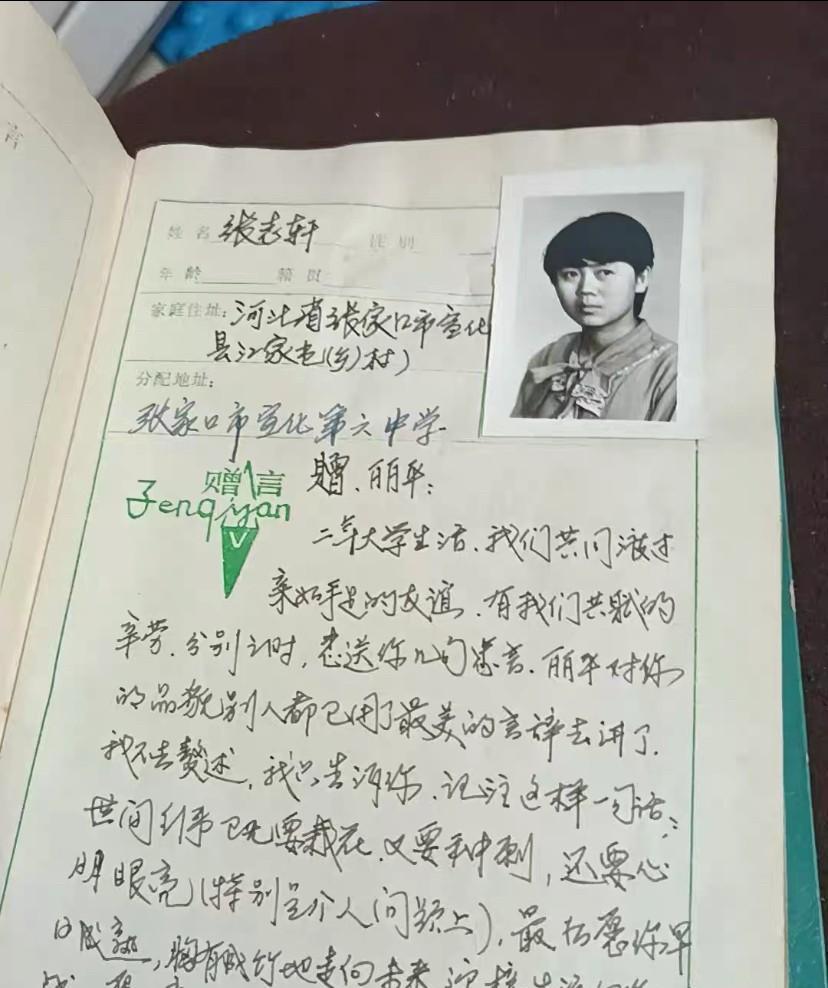 言
姓名 张志轩 性别
年龄 籍贯
家庭住址: 河北省张家口市宣化
县江家屯(乡)村)
分配地址:
张家口市宣化第六中学
赠言
Zengyan
赠、丽华:
二年大学生活、我们共同渡过
亲如手足的友谊、有我们共赋的
辛劳、分别之时,想送你几句忠言、丽华对你
的品貌别人都已用了最美的言辞去讲了.
我不去赘述,我只告诉你、记住这样一句话:
世间行事已要栽花、又要采冲刺,还要心
明眼亮(特别是个人问题上),最后愿你早
日成熟,胸有成竹地走向未来